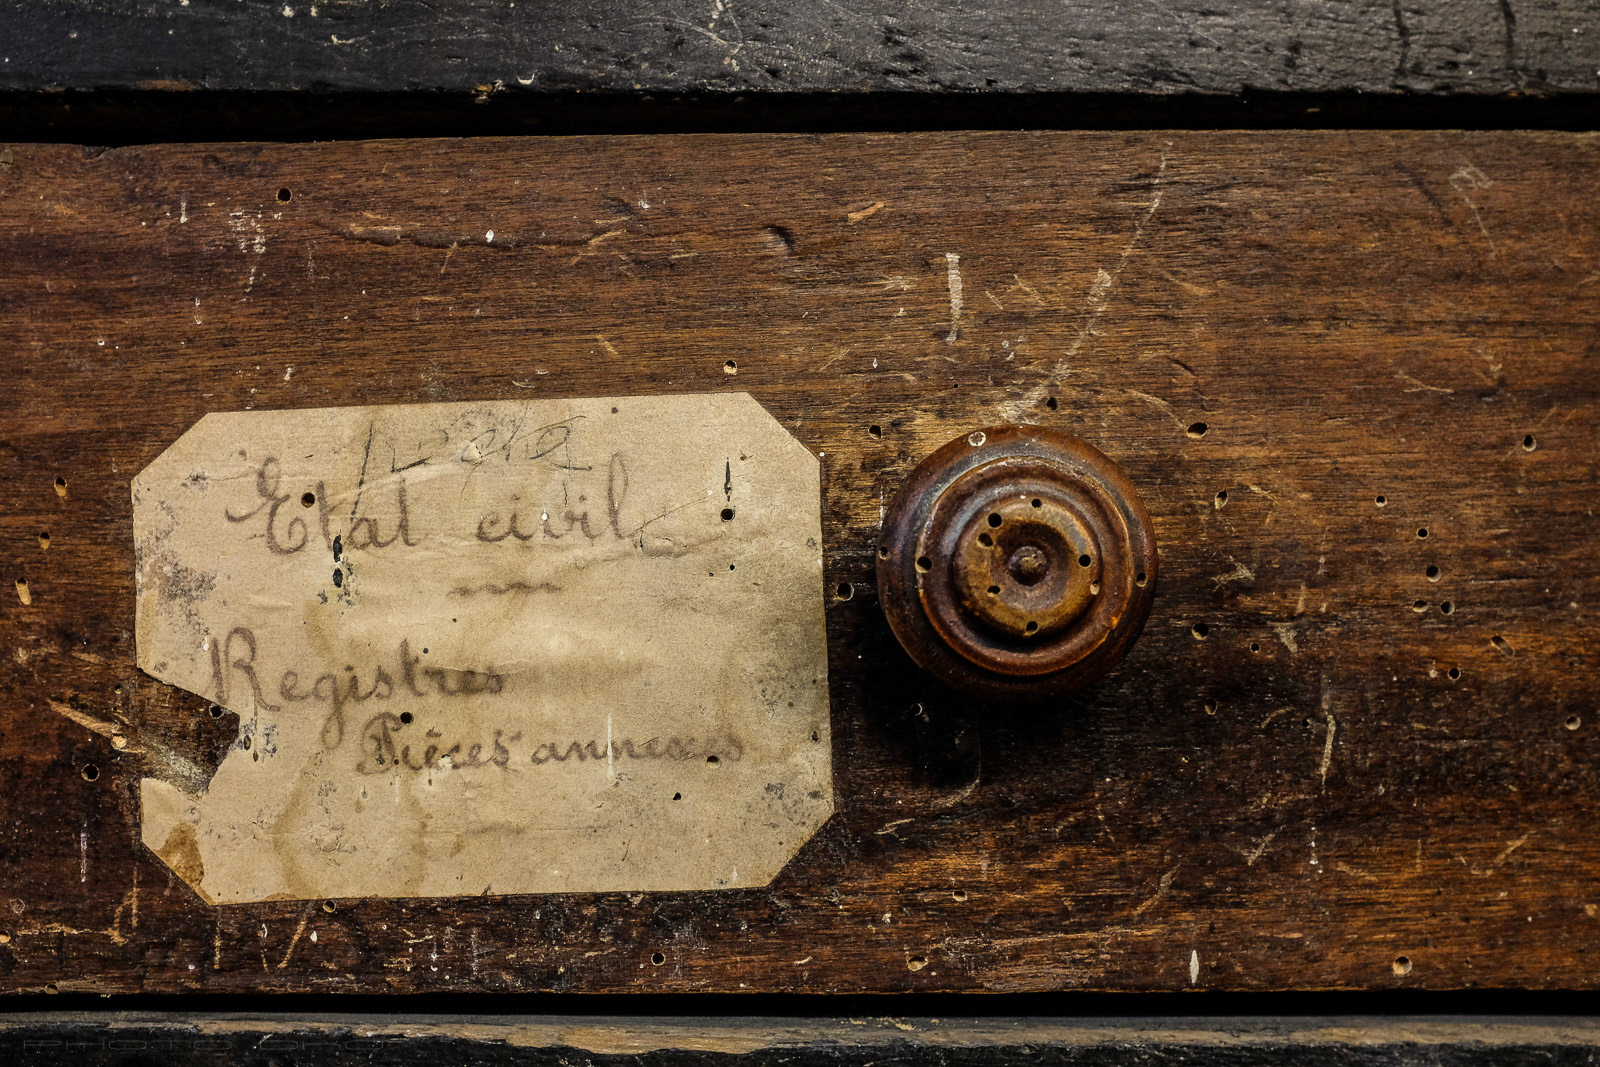 Etat civil
Registres
Pièces annexes